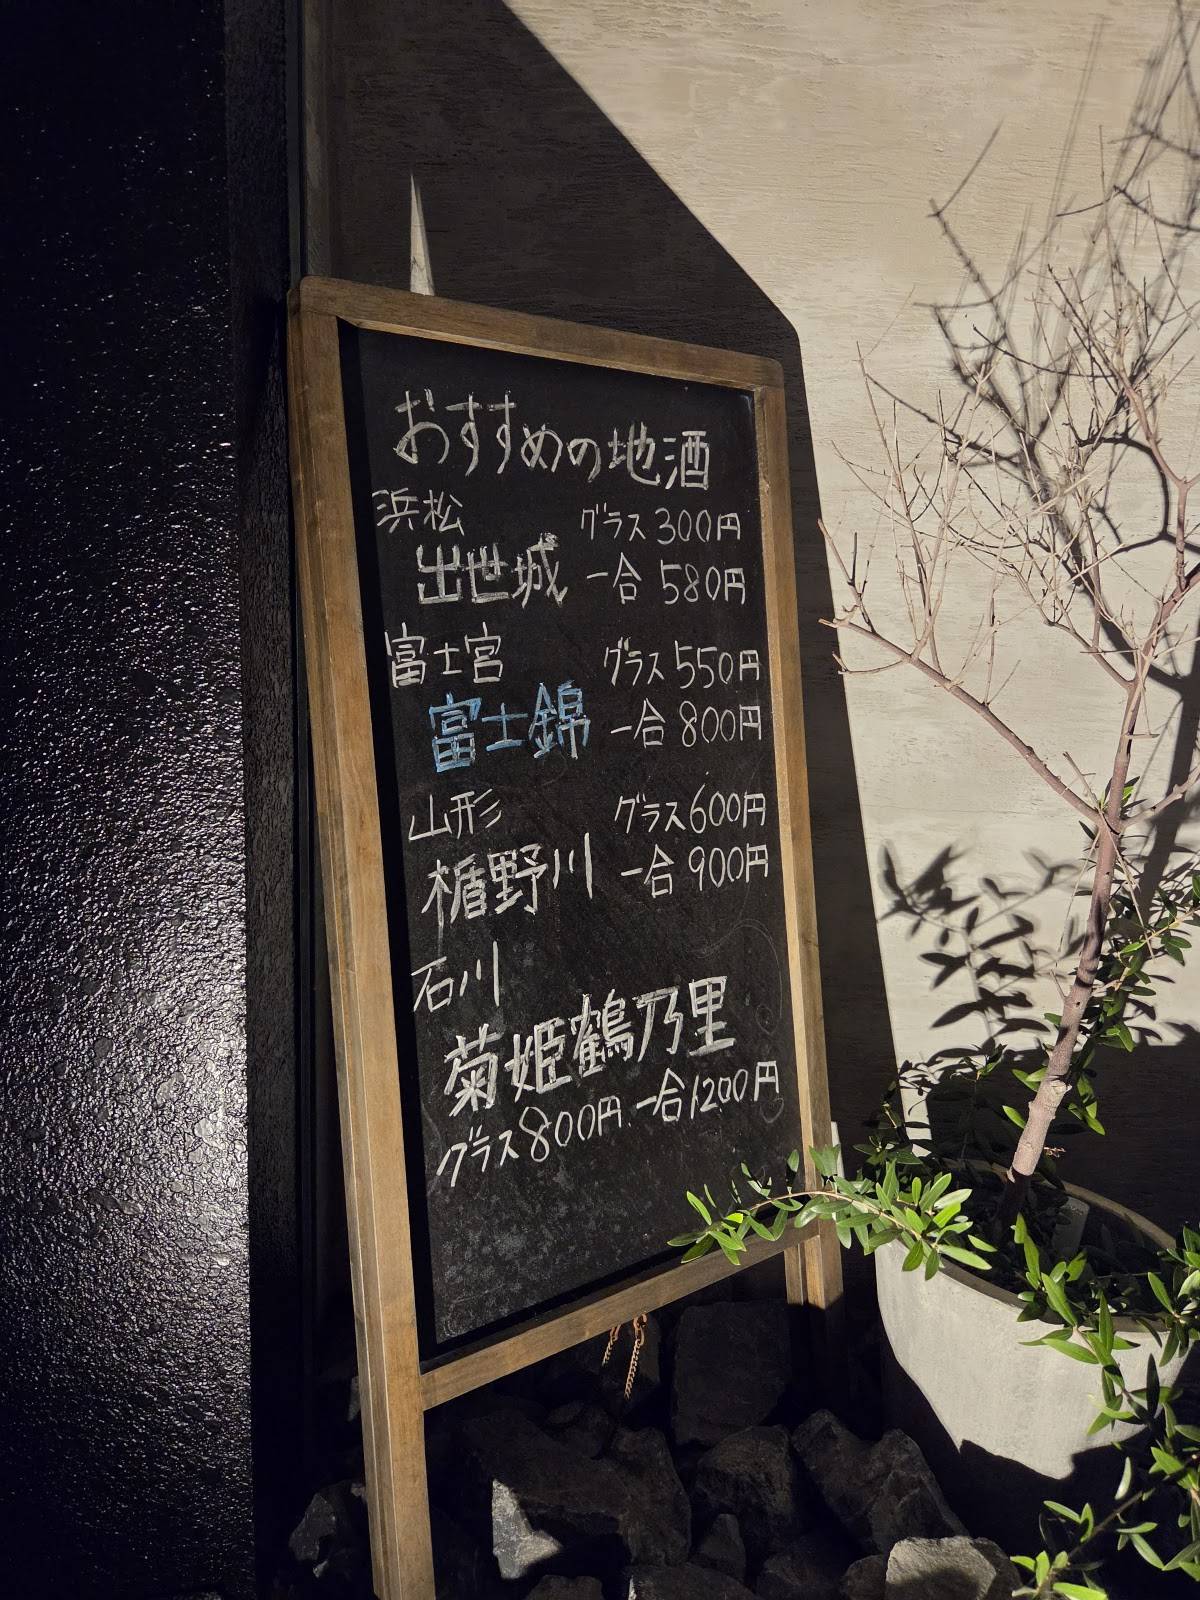 おすすめの地酒
浜松 グラス 300円
出世城 一合 580円
富士宮 グラス 550円
富士錦 一合 800円
山形 グラス 600円
楯野川 一合 900円
石川
菊姫鶴乃里
グラス 800円. 一合 1200円